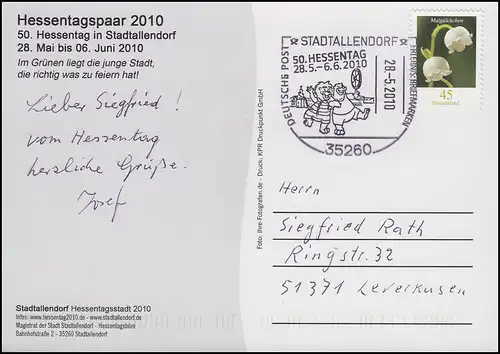 Hessentagspaar 2010
50. Hessentag in Stadtallendorf
28. Mai bis 06. Juni 2010
Im Grünen liegt die junge Stadt,
die richtig was zu feiern hat!
Lieber Siegfried !
vom Hessentag
herzliche Grüße.
Josef
Stadtallendorf Hessentagsstadt 2010
Infos: www.hessentag2010.de - www.stadtallendorf.de
Magistrat der Stadt Stadtallendorf - Hessentagsbüro
Bahnhofstraße 2 - 35260 Stadtallendorf
Foto: Ihre-Fotografen.de - Druck: KPR Druckpunkt GmbH
DEUTSCHE POST
STADTALLENDORF
ERLEBNIS:BRIEFMARKEN
50. HESSENTAG
28.5.-6.6.2010
28.-5.2010
35260
Maiglöckchen
45
Deutschland
Herrn
Siegfried Rath
Ringstr. 32
51371 Leverkusen